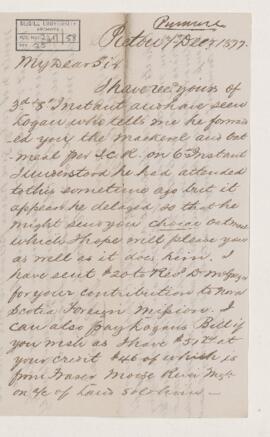 McGILL UNIVERSITY
ARCHIVES
ACC. NO. 2211 58
REF. 25
Pictou 7 Dec 1877.
My Dear Sir
I have rec'd yours of
3rd & 5th Instant and have seen
Logan who tells me he forward
ed you the Mackerel and Oat
meal per I.C.R. on 6th Instant
I understood he had attended
to this sometime ago but it
appears he delayed so that he
might send you choice oatmeal
which I hope will please you
as well as it does him. I
have sent $20 to Rev'd
for your contribution to Nova
Scotia Foreign Mission. I
can also pay Logans Bill if
you wish as I have $51 at
your credit $46 of which is
from Fraser
on a/c of